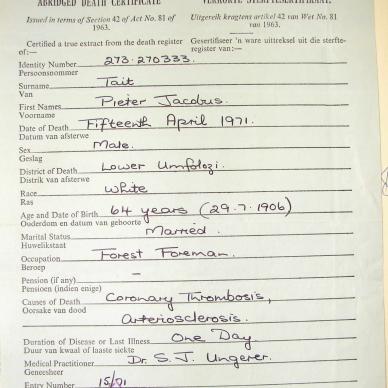 ABRIDGED DEATH CERTIFICATE
VERKORTE STERFTESERTIFIKAAT.
Issued in terms of Section 42 of Act No. 81 of 1963.
Uitgereik kragtens artikel 42 van Wet No. 81 van 1963.
Certified a true extract from the death register of:—
Gesertifiseer 'n ware uittreksel uit die sterfteregister van:—
Identity Number 273·270333.
Persoonsnommer
Surname Tait
Van
First Names Pieter Jacobus.
Voorname
Date of Death Fifteenth April 1971.
Datum van afsterwe
Sex Male.
Geslag
District of Death Lower Umfolozi.
Distrik van afsterwe
Race White
Ras
Age and Date of Birth 64 years (29·7·1906)
Ouderdom en datum van geboorte
Marital Status Married.
Huwelikstaat
Occupation Forest Foreman.
Beroep
Pension (if any) —
Pensioen (indien enige)
Causes of Death Coronary Thrombosis,
Oorsake van dood
Arteriosclerosis.
Duration of Disease or Last Illness One Day
Duur van kwaal of laaste siekte
Medical Practitioner Dr. S. J. Ungerer.
Geneesheer
Entry Number 15/71